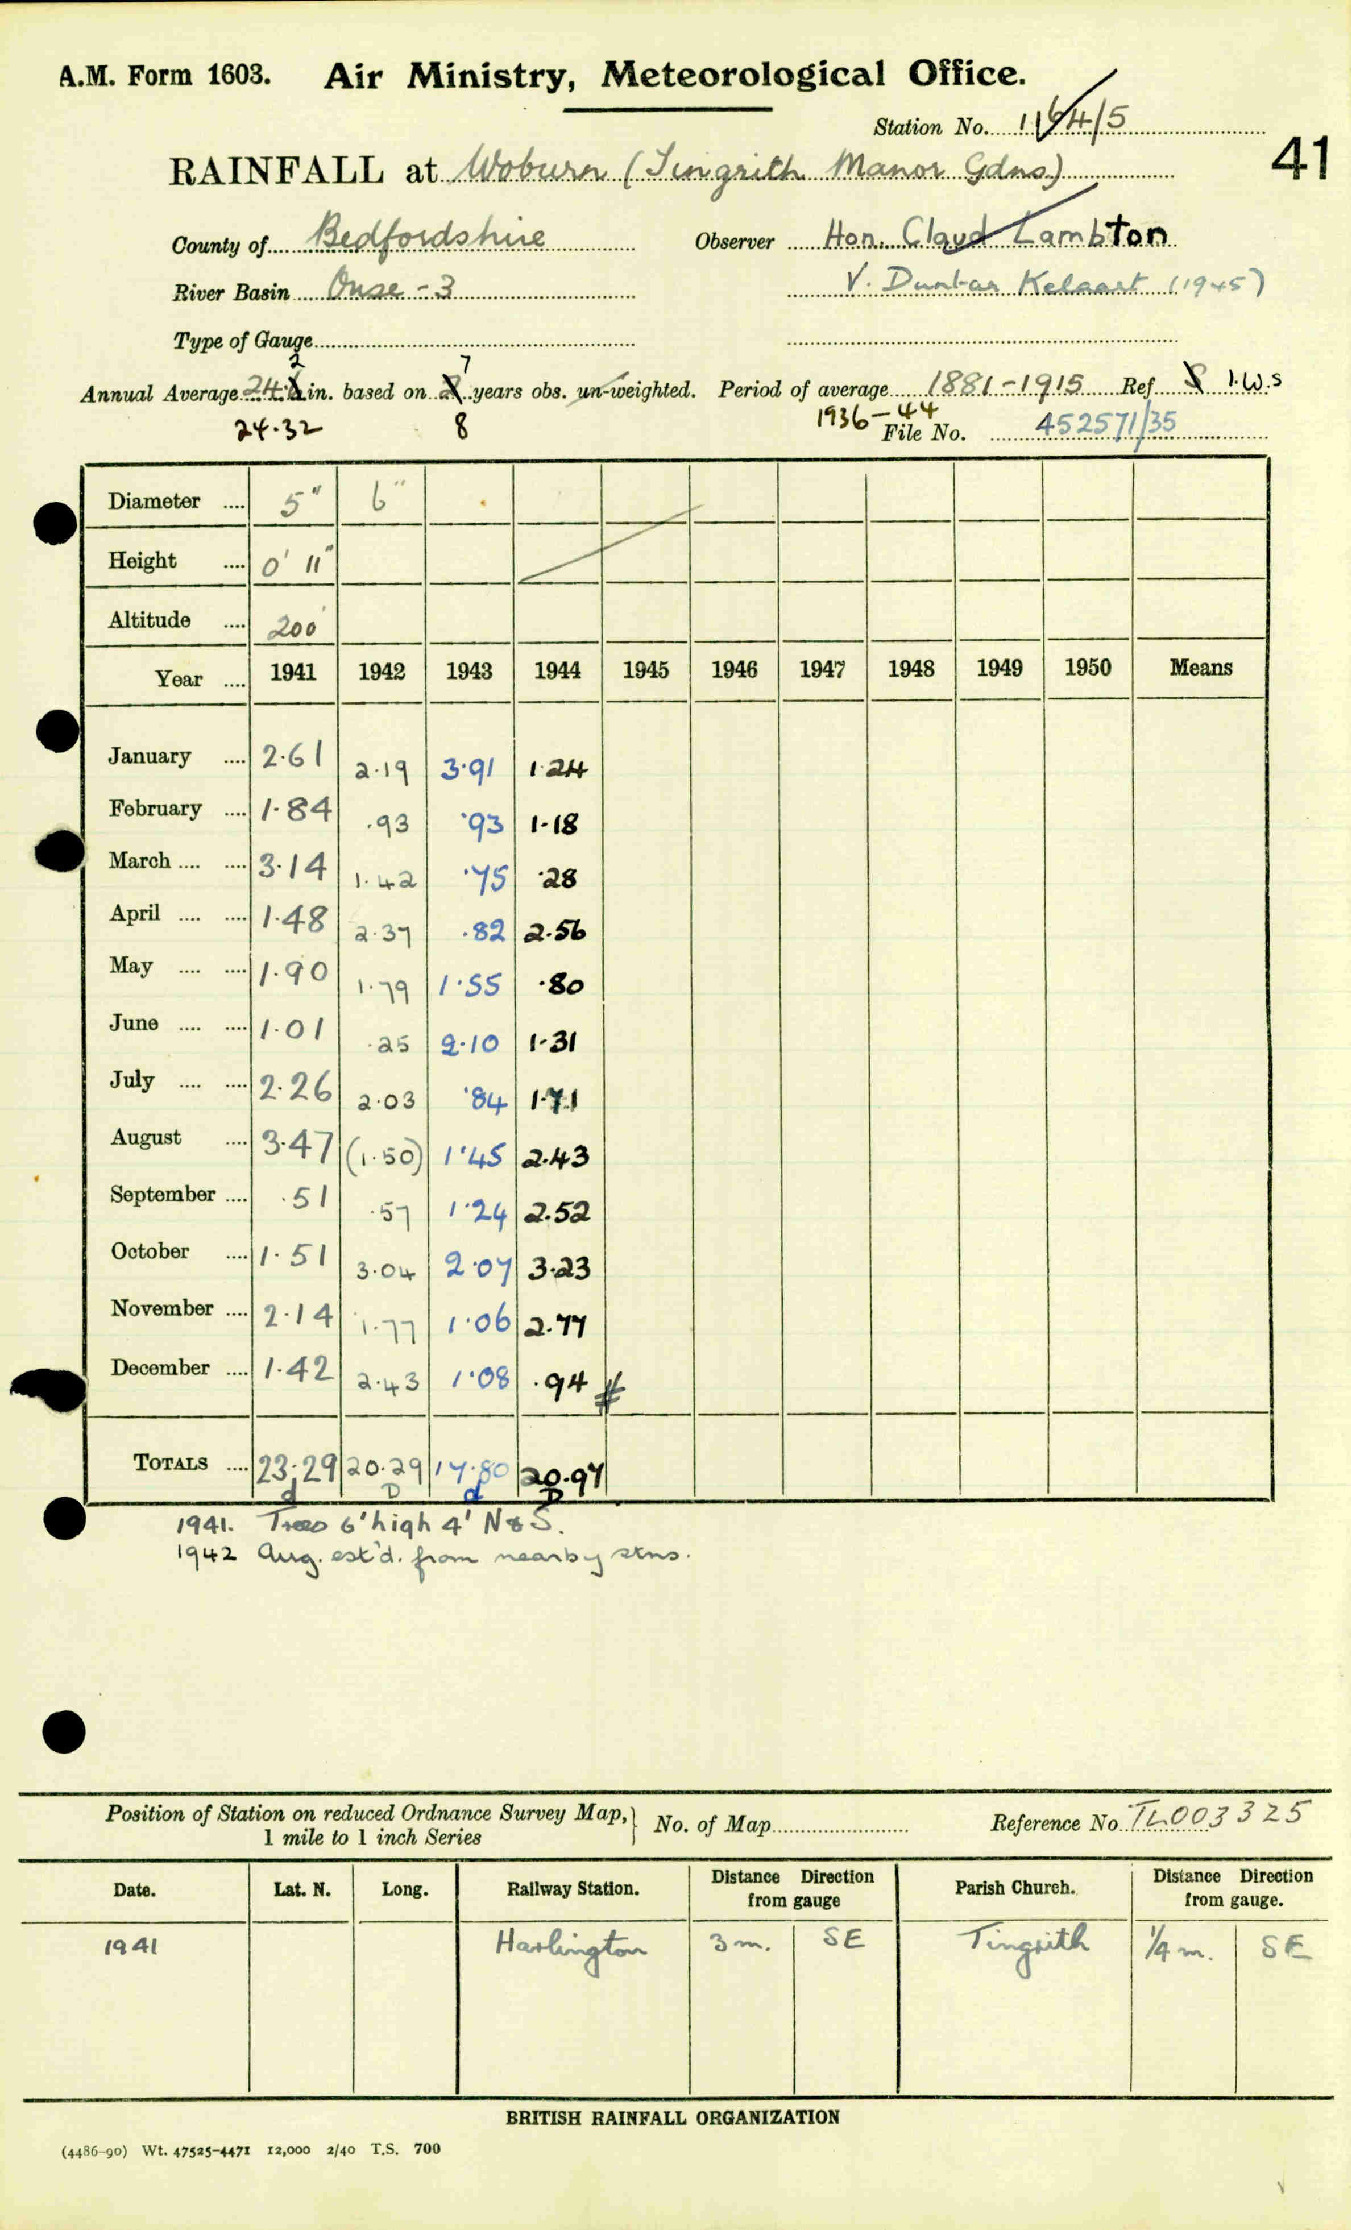 A.M. Form 1603. Air Ministry, Meteorological Office.
Station No. 1164/5
41
RAINFALL at Woburn (Tingrith Manor Gdns)
County of Bedfordshire Observer Hon. Claud Lambton
River Basin Ouse - 3 V. Dunbar Kelaart (1945)
Type of Gauge
2 7
Annual Average 24. in. based on years obs. un-weighted. Period of average 1881-1915 Ref S I.W.S
24.32 8 1936-44 File No. 452571/35
Diameter .... 5" 6"
Height .... 0' 11"
Altitude .... 200'
Year .... 1941 1942 1943 1944 1945 1946 1947 1948 1949 1950 Means
January .... 2.61 2.19 3.91 1.24
February .... 1.84 .93 .93 1.18
March .... .... 3.14 1.42 .75 .28
April .... .... 1.48 2.37 .82 2.56
May .... .... 1.90 1.79 1.55 .80
June .... .... 1.01 .25 2.10 1.31
July .... .... 2.26 2.03 .84 1.71
August .... 3.47 (1.50) 1.45 2.43
September .... .51 .57 1.24 2.52
October .... 1.51 3.04 2.07 3.23
November .... 2.14 1.77 1.06 2.77
December .... 1.42 2.43 1.08 .94 #
TOTALS .... 23.29 20.29 17.80 20.97
d D d D
1941. Trees 6' high 4' N & S.
1942 Aug. est'd. from nearby stns.
Position of Station on reduced Ordnance Survey Map, } No. of Map Reference No TL003325
1 mile to 1 inch Series
Date. Lat. N. Long. Railway Station. Distance from gauge Direction Parish Church. Distance from gauge. Direction
1941 Harlington 3 m. SE Tingrith 1/4 m. SE
BRITISH RAINFALL ORGANIZATION
(4486-90) Wt. 47525-4471 12,000 2/40 T.S. 700